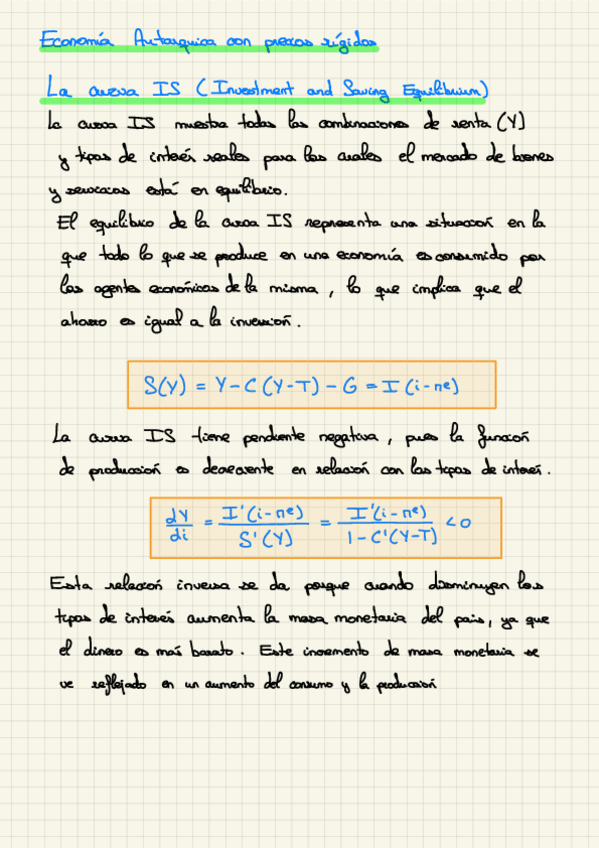 Economía Autarquica con precios rígidos
La curva IS (Investment and Saving Equilibrium)
La curva IS muestra todas las combinaciones de renta (Y)
y tipos de interés reales para los cuales el mercado de bienes
y servicios está en equilibrio.
El equilibrio de la curva IS representa una situación en la
que todo lo que se produce en una economía es consumido por
los agentes económicos de la misma, lo que implica que el
ahorro es igual a la inversión.
S(Y) = Y - C (Y-T) - G = I (i - πe)
La curva IS tiene pendiente negativa, pues la función
de producción es decreciente en relación con los tipos de interés.
dY/di = I'(i-πe)/S'(Y) = I'(i-πe)/1-C'(Y-T) < 0
Esta relación inversa se da porque cuando disminuyen los
tipos de interés aumenta la masa monetaria del país, ya que
el dinero es más barato. Este incremento de masa monetaria se
ve reflejado en un aumento del consumo y la producción